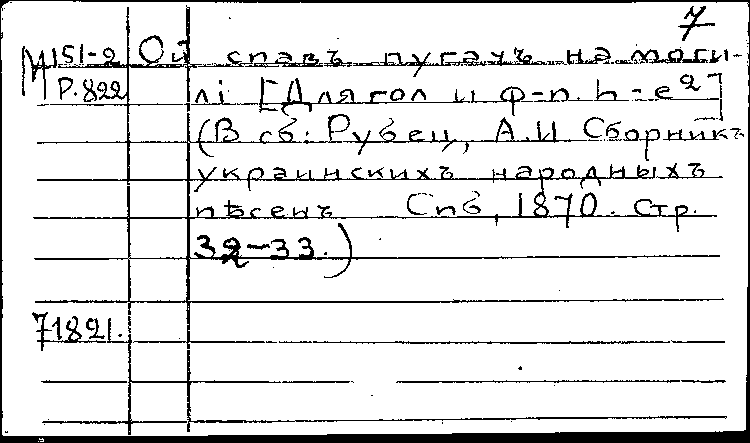 7
М151-2 Ой спавъ пугачъ на моги-
Р.822 лі [Для гол и ф-п. h - e²]
(В сб: Рубец, А.И Сборникъ
украинскихъ народныхъ
пѣсенъ Спб, 1870. Стр.
32-33.)
71821.